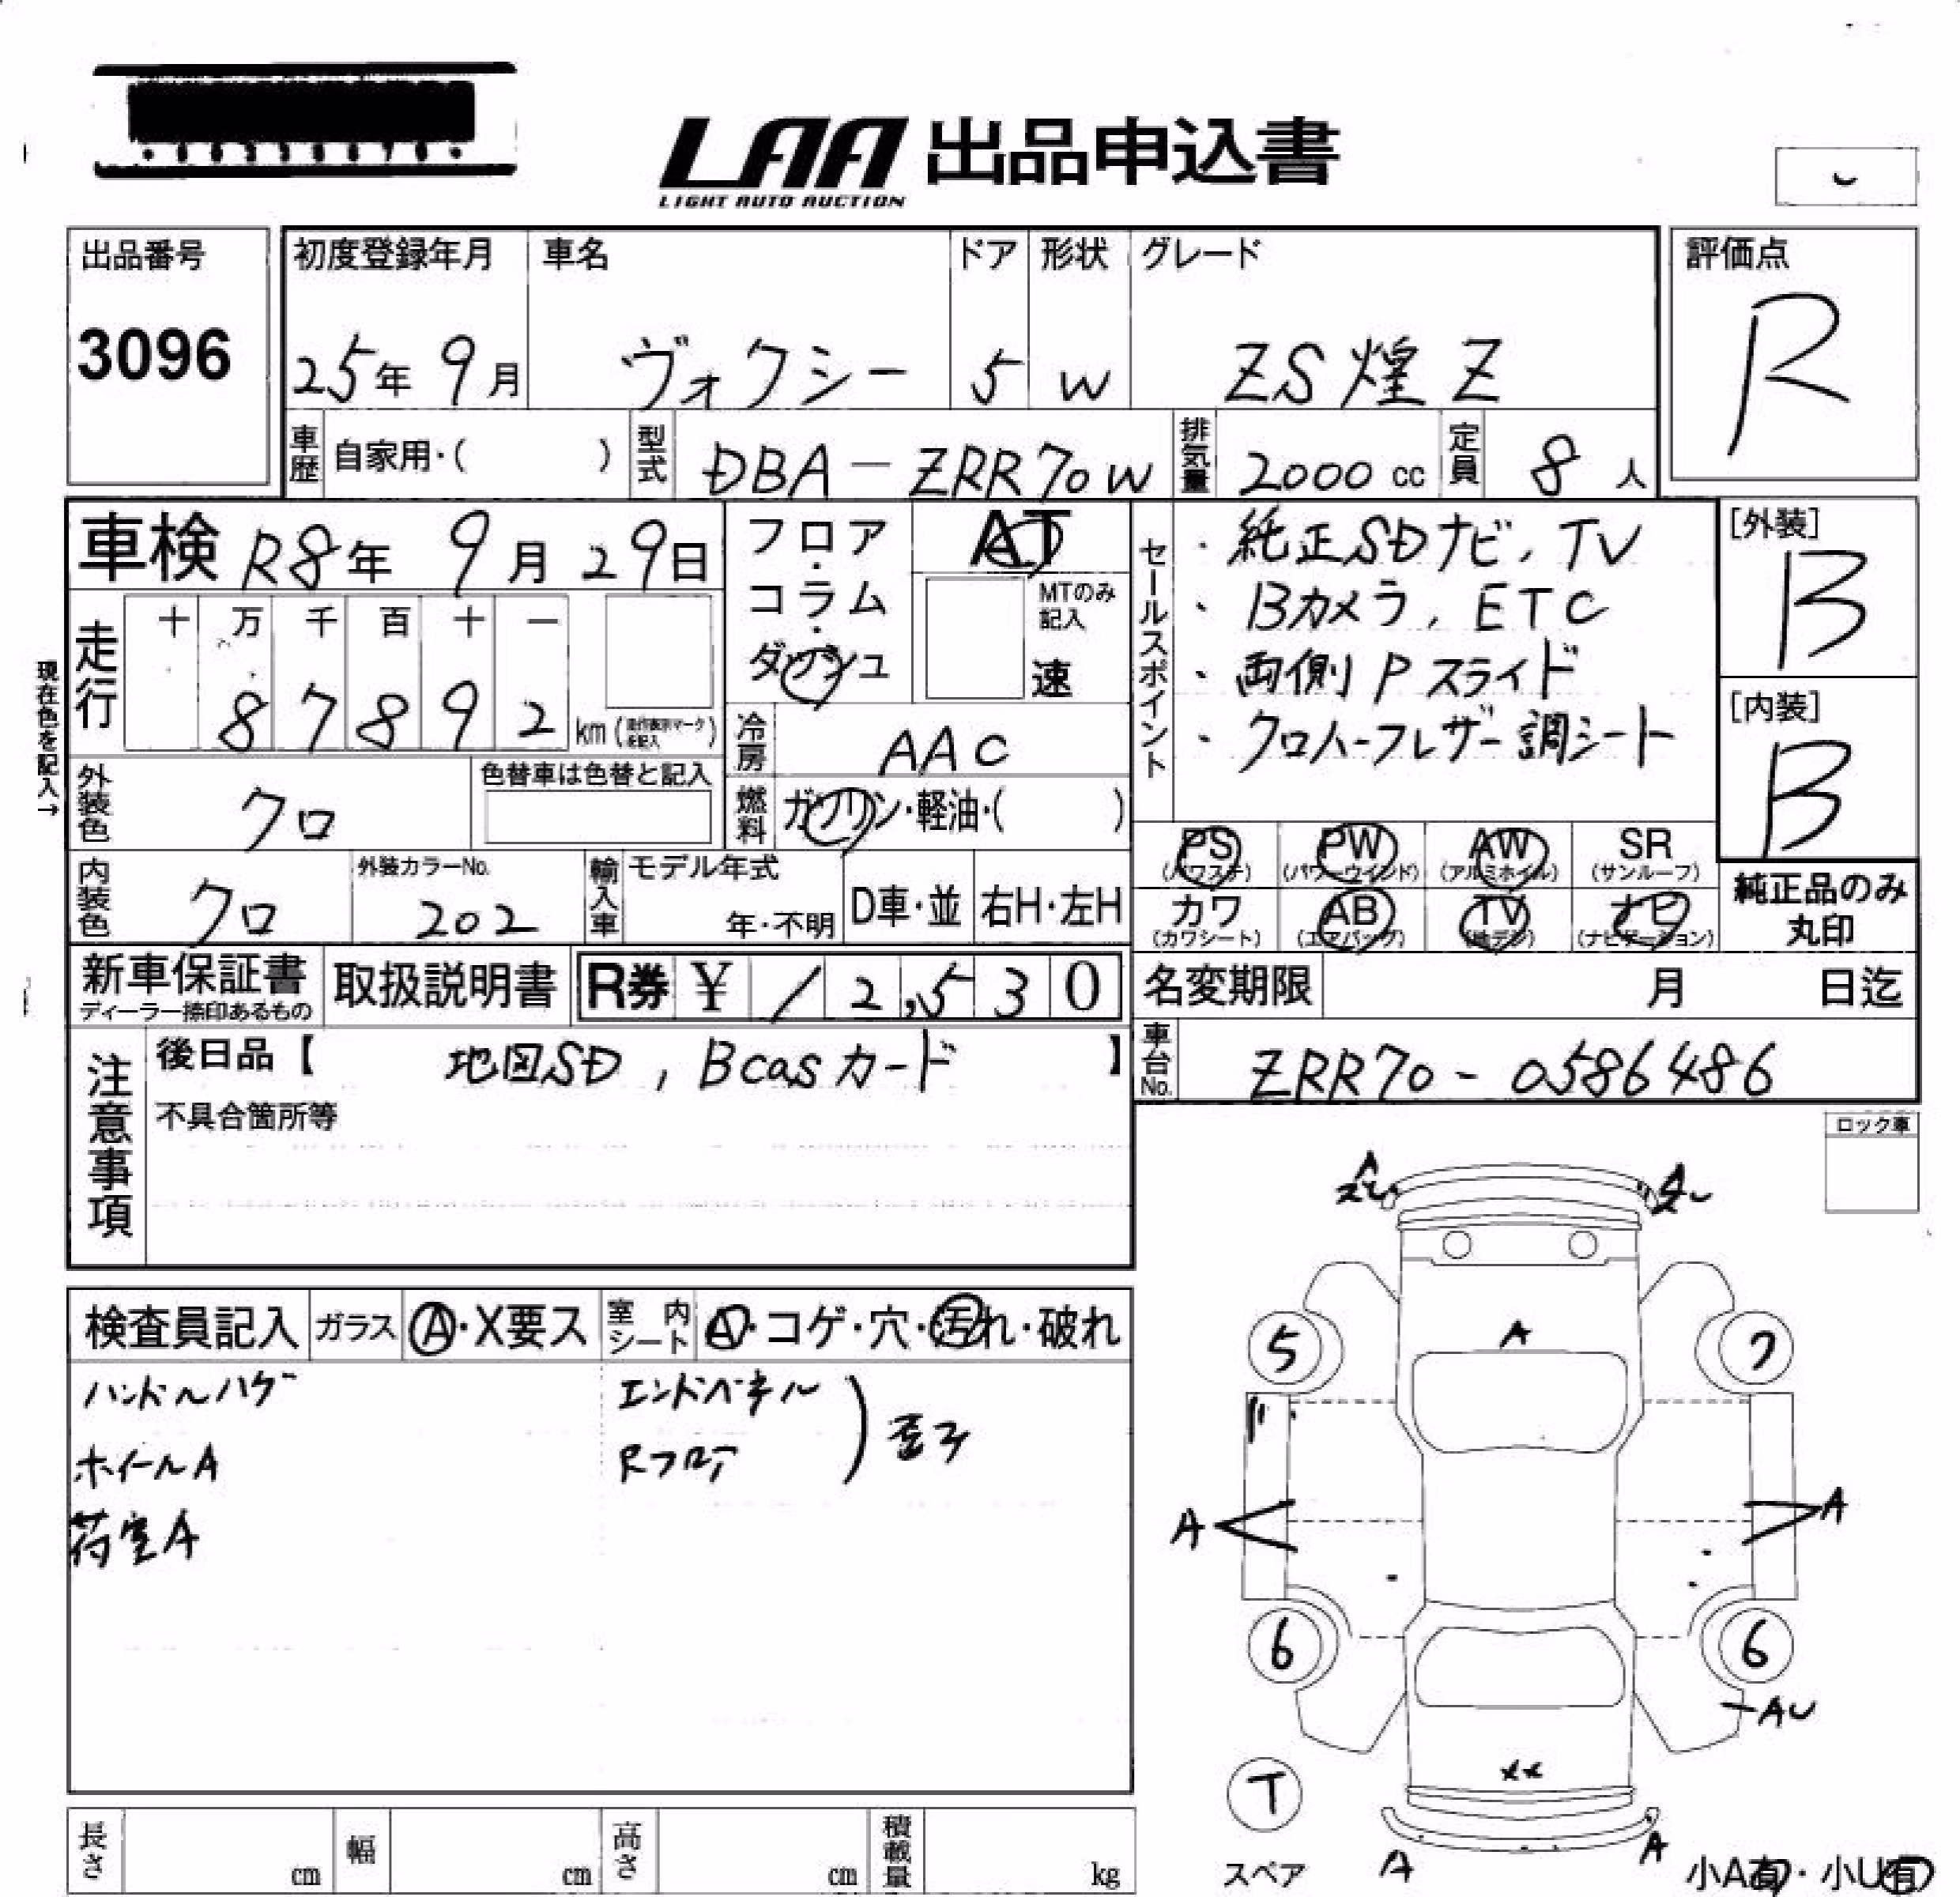 LAA 出品申込書
LIGHT AUTO AUCTION
出品番号
3096
初度登録年月 車名 ドア 形状 グレード
25年 9月 ヴォクシー 5 W ZS煌Z
評価点
R
車歴 自家用・( ) 型式 DBA-ZRR70W 排気量 2000 cc 定員 8 人
車検 R8年 9月 29日
フロア・コラム・ダッシュ
AT
MTのみ記入
速
走行 十 万 千 百 十 一
87892 km
現在色を記入→
冷房 AAC
燃料 ガソリン・軽油・( )
外装色 クロ
色替車は色替と記入
内装色 クロ
外装カラーNo.
202
輸入車 モデル年式
年・不明 D車・並 右H・左H
セールスポイント
・純正SDナビ, TV
・Bカメラ, ETC
・両側Pスライド
・クロハーフレザー調シート
[外装]
B
[内装]
B
PS PW AW SR
(パワステ) (パワーウインド) (アルミホイル) (サンルーフ)
カワ AB TV ナビ
(カワシート) (エアバッグ) (地デジ) (ナビゲーション)
純正品のみ
丸印
新車保証書
ディーラー捺印あるもの
取扱説明書 R券 ¥ 12,530
名変期限 月 日迄
注意事項
後日品【 地図SD, Bcasカード 】
不具合箇所等
車台No. ZRR70-0586486
ロック車
検査員記入 ガラス A・X要ス 室内シート A・コゲ・穴・汚れ・破れ
ハンドルハゲ
ホイールA
荷室A
エンドパネル
Rフロア
歪み
A
A
5 7
A A
6 6
AU
T
スペア
XX
A A
小A有・小U有
長さ cm 幅 cm 高さ cm 積載量 kg